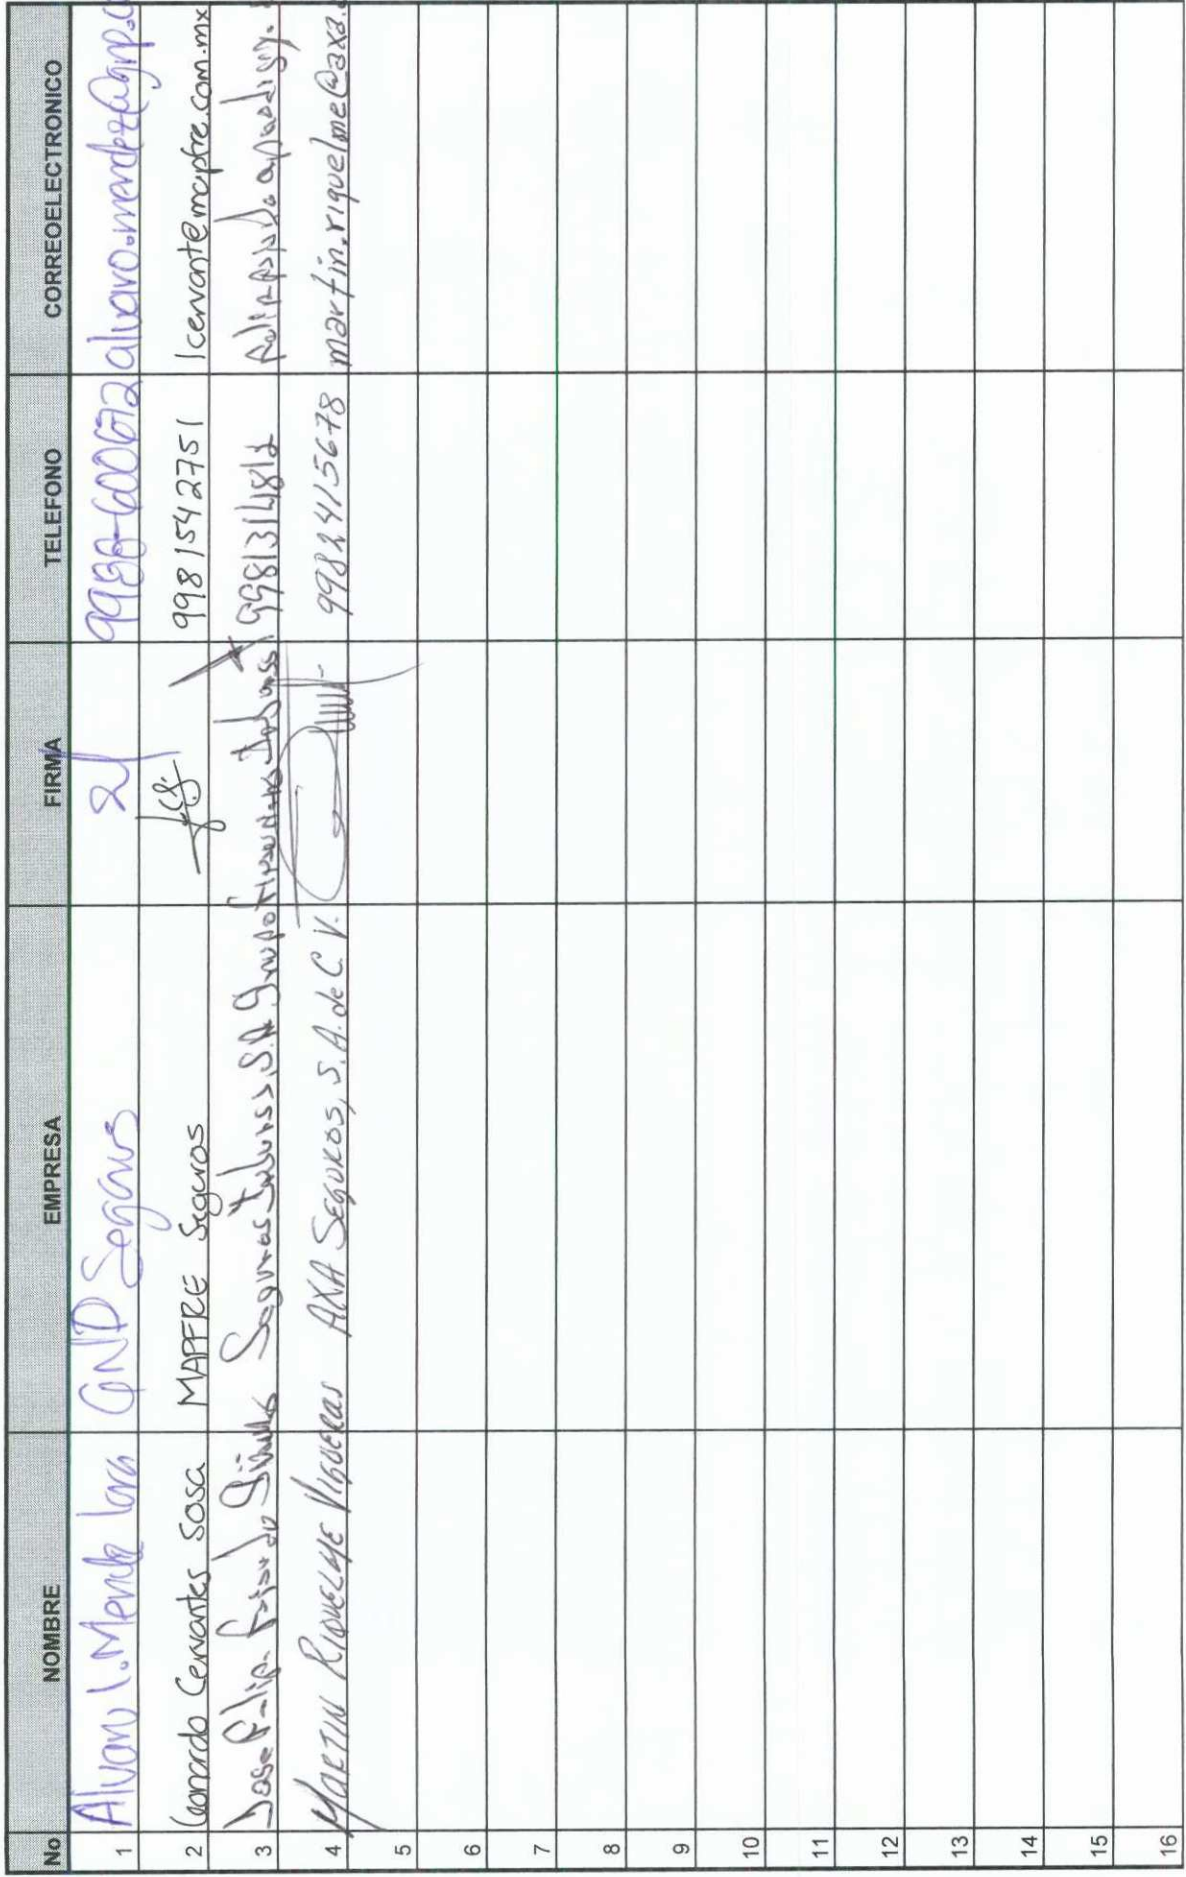 No NOMBRE EMPRESA FIRMA TELEFONO CORREOELECTRONICO
1 Alvaro I. Mendez Lara GNP Seguros alvaro.mendez@gnp.c
2 Leonardo Cervantes Sosa MAPFRE Seguros 998 1542751 lcervant@mapfre.com.mx
3 Jose Felipe Fajardo Seguros Inbursa, S.A. Grupo Financiero Inbursa
4 MARTIN RIQUELME VIGUERAS AXA SEGUROS, S.A. de C.V. 9982415678 martin.riquelme@axa.
5
6
7
8
9
10
11
12
13
14
15
16